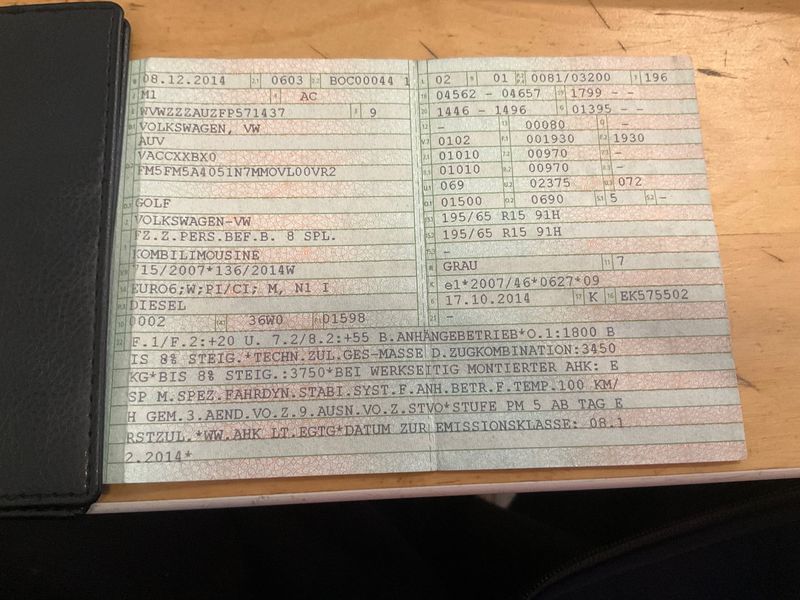 08.12.2014 2.1 0603 2.2 BOC00044 1
M1 AC
WVWZZZAUZFP571437 3 9
VOLKSWAGEN, VW
AUV
VACCXXBX0
FM5FM5A4051N7MMOVL00VR2
GOLF
VOLKSWAGEN-VW
FZ.Z.PERS.BEF.B. 8 SPL.
KOMBILIMOUSINE
715/2007*136/2014W
EURO6;W;PI/CI; M, N1 I
DIESEL
0002 36W0 01598
L 02 9 01 0081/03200 T 196
18 04562 - 04657 19 1799 - -
20 1446 - 1496 G 01395 - -
12 - 13 00080 Q -
V.7 0102 F.1 001930 F.2 1930
7.1 01010 7.2 00970 7.3 -
8.1 01010 8.2 00970 8.3 -
U.1 069 U.2 02375 U.3 072
O.1 01500 O.2 0690 S.1 5 S.2 -
15.1 195/65 R15 91H
15.2 195/65 R15 91H
15.3 -
R GRAU 11 7
K e1*2007/46*0627*09
6 17.10.2014 17 K 16 EK575502
21 -
F.1/F.2:+20 U. 7.2/8.2:+55 B.ANHÄNGEBETRIEB*O.1:1800 B
IS 8% STEIG.*TECHN.ZUL.GES-MASSE D.ZUGKOMBINATION:3450
KG*BIS 8% STEIG.:3750*BEI WERKSEITIG MONTIERTER AHK: E
SP M.SPEZ.FAHRDYN.STABI.SYST.F.ANH.BETR.F.TEMP.100 KM/
H GEM.3.AEND.VO.Z.9.AUSN.VO.Z.STVO*STUFE PM 5 AB TAG E
RSTZUL.*WW.AHK LT.EGTG*DATUM ZUR EMISSIONSKLASSE: 08.1
2.2014*